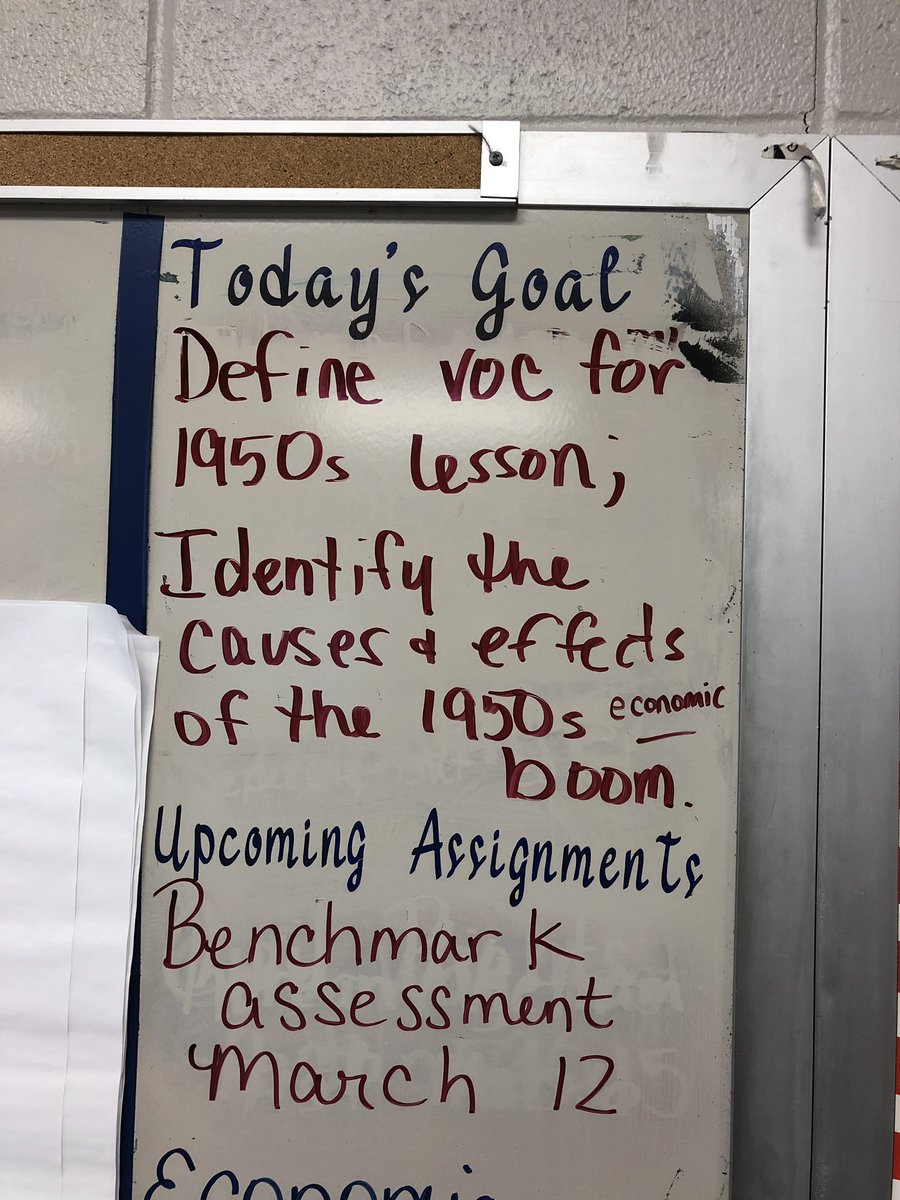 Today's Goal
Define voc for
1950s lesson;
Identify the
causes & effects
of the 1950s economic
boom.
Upcoming Assignments
Benchmark
assessment
March 12
Economic